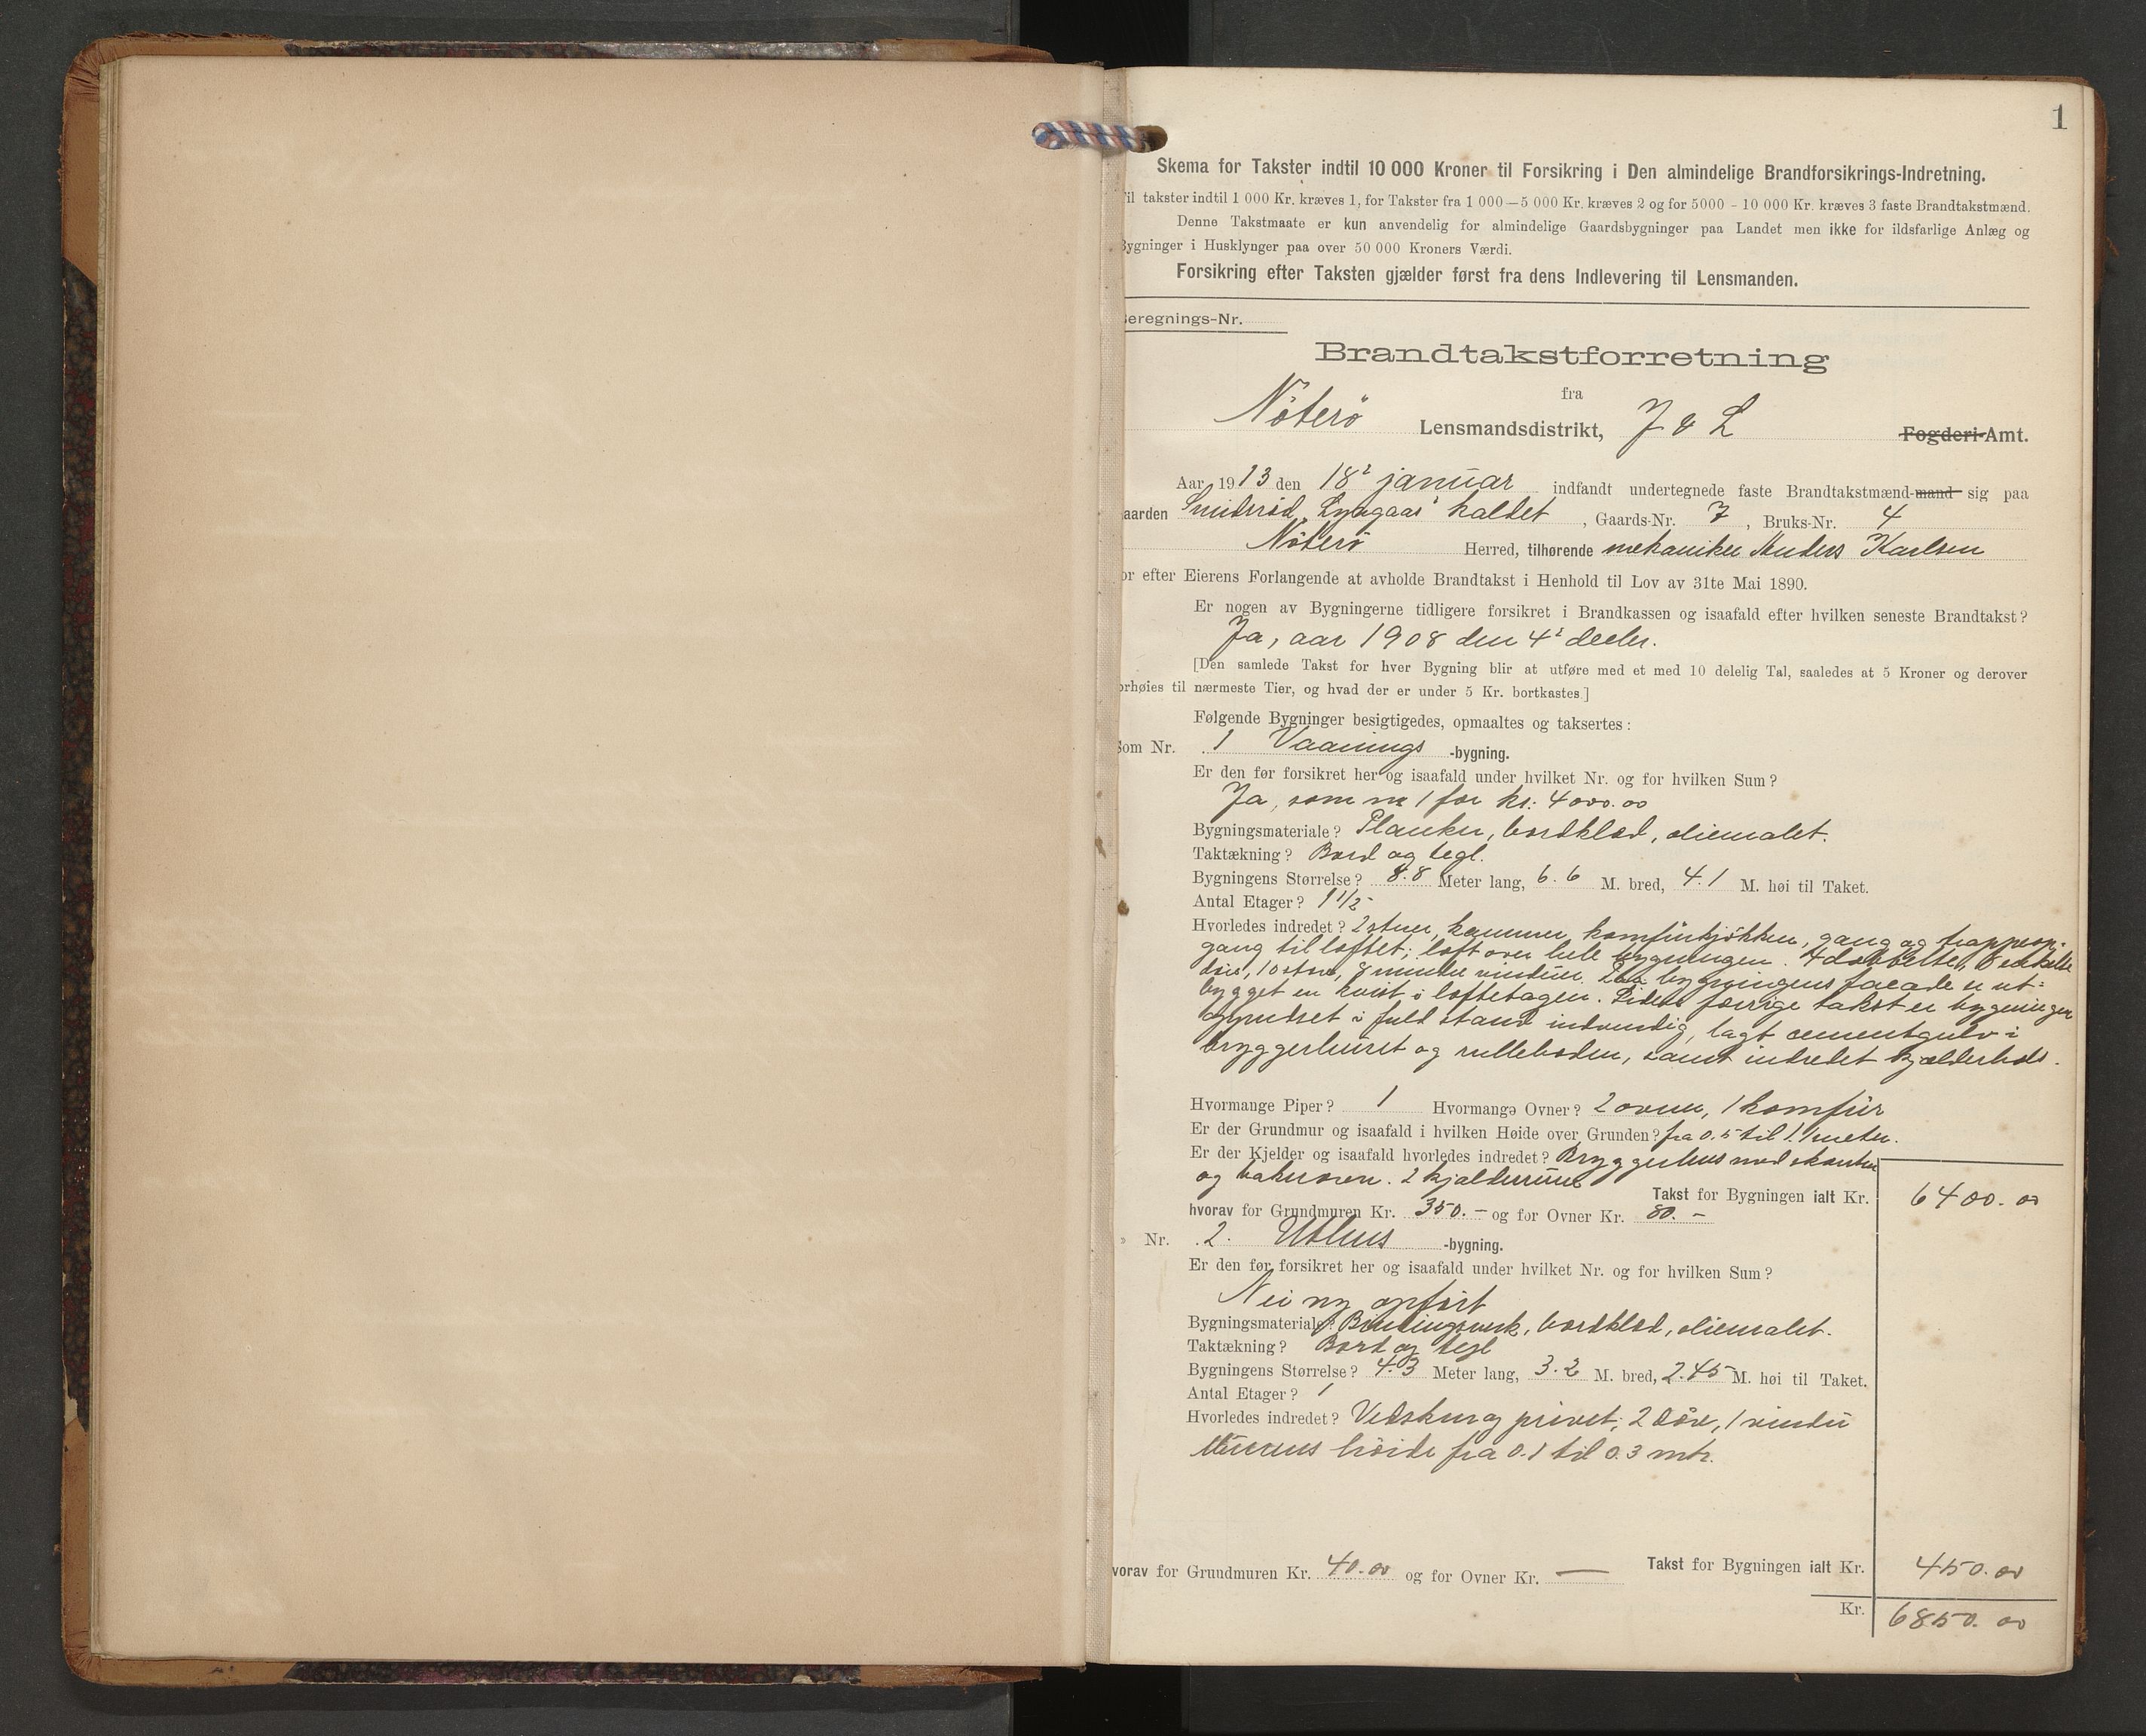 1
Skema for Takster indtil 10 000 Kroner til Forsikring i Den almindelige Brandforsikrings-Indretning.
Til takster indtil 1 000 Kr. kræves 1, for Takster fra 1 000—5 000 Kr. kræves 2 og for 5000 - 10 000 Kr. kræves 3 faste Brandtakstmænd.
Denne Takstmaate er kun anvendelig for almindelige Gaardsbygninger paa Landet men ikke for ildsfarlige Anlæg og
Bygninger i Husklynger paa over 50 000 Kroners Værdi.
Forsikring efter Taksten gjælder først fra dens Indlevering til Lensmanden.
Beregnings-Nr.
Brandtakstforretning
fra
Nöterö Lensmandsdistrikt, J & L Fogderi-Amt.
Aar 1913 den 18' januar indfandt undertegnede faste Brandtakstmænd-mand sig paa
aarden Smidsröd, Lyngaas kaldet, Gaards-Nr. 7, Bruks-Nr. 4
Nöterö Herred, tilhørende mekaniker Anders Karlsen
or efter Eierens Forlangende at avholde Brandtakst i Henhold til Lov av 31te Mai 1890.
Er nogen av Bygningerne tidligere forsikret i Brandkassen og isaafald efter hvilken seneste Brandtakst?
Ja, aar 1908 den 4' decbr.
[Den samlede Takst for hver Bygning blir at utføre med et med 10 delelig Tal, saaledes at 5 Kroner og derover
orhøies til nærmeste Tier, og hvad der er under 5 Kr. bortkastes.]
Følgende Bygninger besigtigedes, opmaaltes og taksertes:
Som Nr. 1 Vaanings -bygning.
Er den før forsikret her og isaafald under hvilket Nr. og for hvilken Sum?
Ja, som nr 1 for kr. 4000.00
Bygningsmateriale? Planker, bordklæd, oliemalet.
Taktækning? Bord og tegl.
Bygningens Størrelse? 8.8 Meter lang, 6.6 M. bred, 4.1 M. høi til Taket.
Antal Etager? 1 1/2
Hvorledes indredet? 2 stuer, kammer, komfürkjökken, gang og trappeop-
gang til loftet; loft over hele bygningen. 4 dobbelte, 8 enkelte
döre, 10 store, 8 mindre vinduer. Paa bygningens facade er ut-
bygget en kvist i loftetagen. Siden forrige takst er bygningen
oppudset i fuld stand indvendig, lagt cementgulv i
bryggerhuset og rulleboden, samt indredet kjælderbod.
Hvormange Piper? 1 Hvormange Ovner? 2 ovner, 1 komfür
Er der Grundmur og isaafald i hvilken Høide over Grunden? fra 0.5 til 1.1 meter.
Er der Kjelder og isaafald hvorledes indredet? Bryggerhus med skorsten
og bakerovn. 2 kjælderrum
Takst for Bygningen ialt Kr. 6400.00
hvorav for Grundmuren Kr. 350.- og for Ovner Kr. 80.-
» Nr. 2. Uthus -bygning.
Er den før forsikret her og isaafald under hvilket Nr. og for hvilken Sum?
Nei ny opfört
Bygningsmateriale? Bindingsverk, bordklæd, oliemalet.
Taktækning? Bord og tegl
Bygningens Størrelse? 4.3 Meter lang, 3.2 M. bred, 2.45 M. høi til Taket.
Antal Etager? 1
Hvorledes indredet? Vedskur og privet; 2 döre, 1 vindu
Murens höide fra 0.1 til 0.3 mtr.
vorav for Grundmuren Kr. 40.00 og for Ovner Kr. — Takst for Bygningen ialt Kr. 450.00
Kr. 6850.00